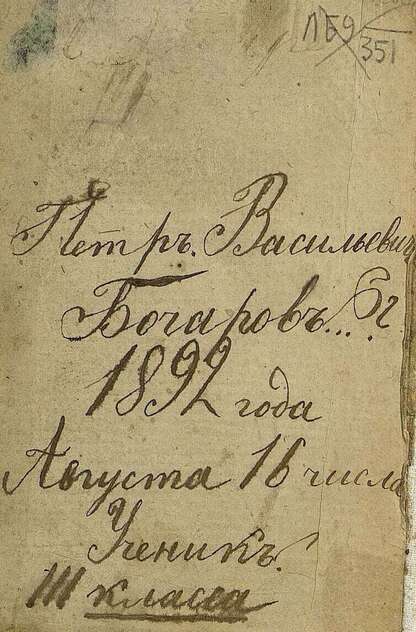 ПБ9
351
Петръ. Васильевич
Бочаровъ...
1892 года
Августа 16 числа
Ученикъ.
III класса